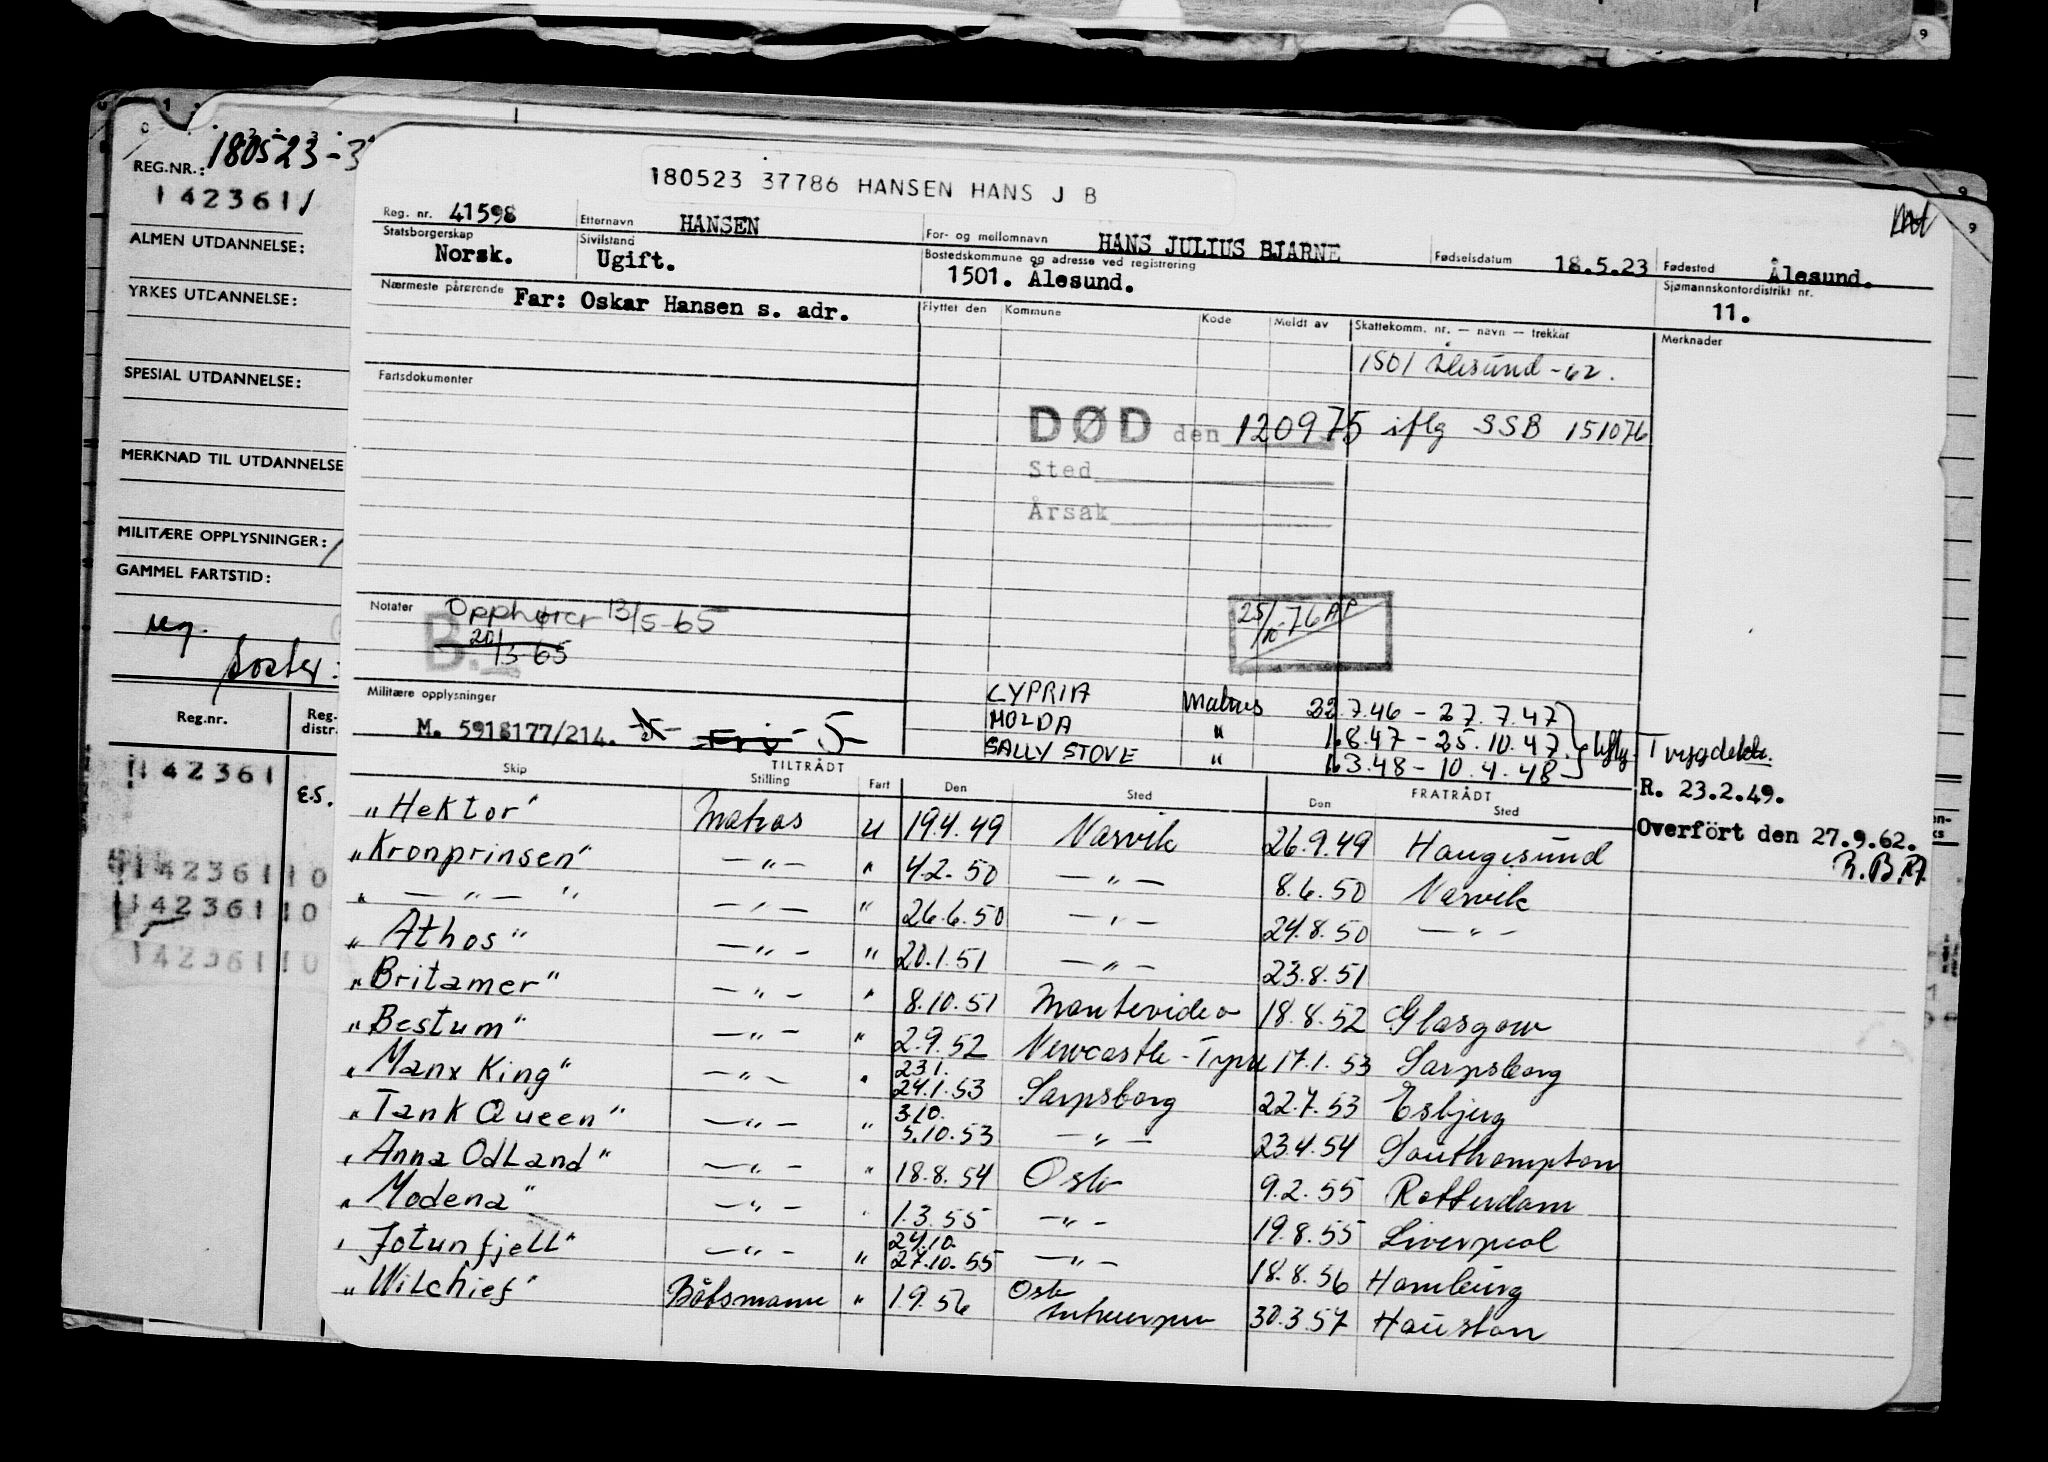 REG.NR.: 180523-3
142361
ALMEN UTDANNELSE:
YRKES UTDANNELSE:
SPESIAL UTDANNELSE:
MERKNAD TIL UTDANNELSE
MILITÆRE OPPLYSNINGER:
GAMMEL FARTSTID:
Reg.nr. Reg. distr.
142361 E.S.
142361 10
142361 10
142361 10
180523 37786 HANSEN HANS J B
Reg. nr. 41598 Etternavn HANSEN For- og mellomnavn HANS JULIUS BJARNE Fødselsdatum 18.5.23 Fødested Ålesund.
Statsborgerskap Norsk. Sivilstand Ugift. Bostedskommune og adresse ved registrering 1501. Ålesund. Sjømannskontordistrikt nr. 11.
Nærmeste pårørende Far: Oskar Hansen s. adr.
Flyttet den Kommune Kode Meldt av Skattekomm. nr. — navn — trekkår Merknader
1501 Ålesund -62.
Fartsdokumenter
DØD den 120975 iflg SSB 151076
Sted
Årsak
Notater Opphører 13/5-65
B. 20/3-65
25/10-76 AP
Militære opplysninger
M. 5918177/214. Fri 5
CYPRIA Matros 22.7.46 - 27.7.47
MOLDA " 1.8.47 - 25.10.47 iflg. Trygdekk.
SALLY STOVE " 1.3.48 - 10.4.48
R. 23.2.49.
Overført den 27.9.62.
R.B.A.
TILTRÅDT FRATRÅDT
Skip Stilling Fart Den Sted Den Sted
"Hektor" Matros U 19.4.49 Narvik 26.9.49 Haugesund
"Kronprinsen" — " — " 4.2.50 — " — 8.6.50 Narvik
" — " — " — " — " 26.6.50 — " — 24.8.50 — " —
"Athos" — " — " 20.1.51 — " — 23.8.51
"Britamer" — " — " 8.10.51 Montevideo 18.8.52 Glasgow
"Bestum" — " — " 2.9.52 Newcastle-Tyne 17.1.53 Sarpsborg
"Manx King" — " — " 23.1. 24.1.53 Sarpsborg 22.7.53 Esbjerg
"Tank Queen" — " — " 3.10. 5.10.53 — " — 23.4.54 Southampton
"Anna Odland" — " — " 18.8.54 Oslo 9.2.55 Rotterdam
"Modena" — " — " 1.3.55 — " — 19.8.55 Liverpool
"Jotunfjell" — " — " 24.10. 27.10.55 — " — 18.8.56 Hamburg
"Wilchief" Båtsmann " 1.9.56 Oslo Antwerpen 30.3.57 Houston